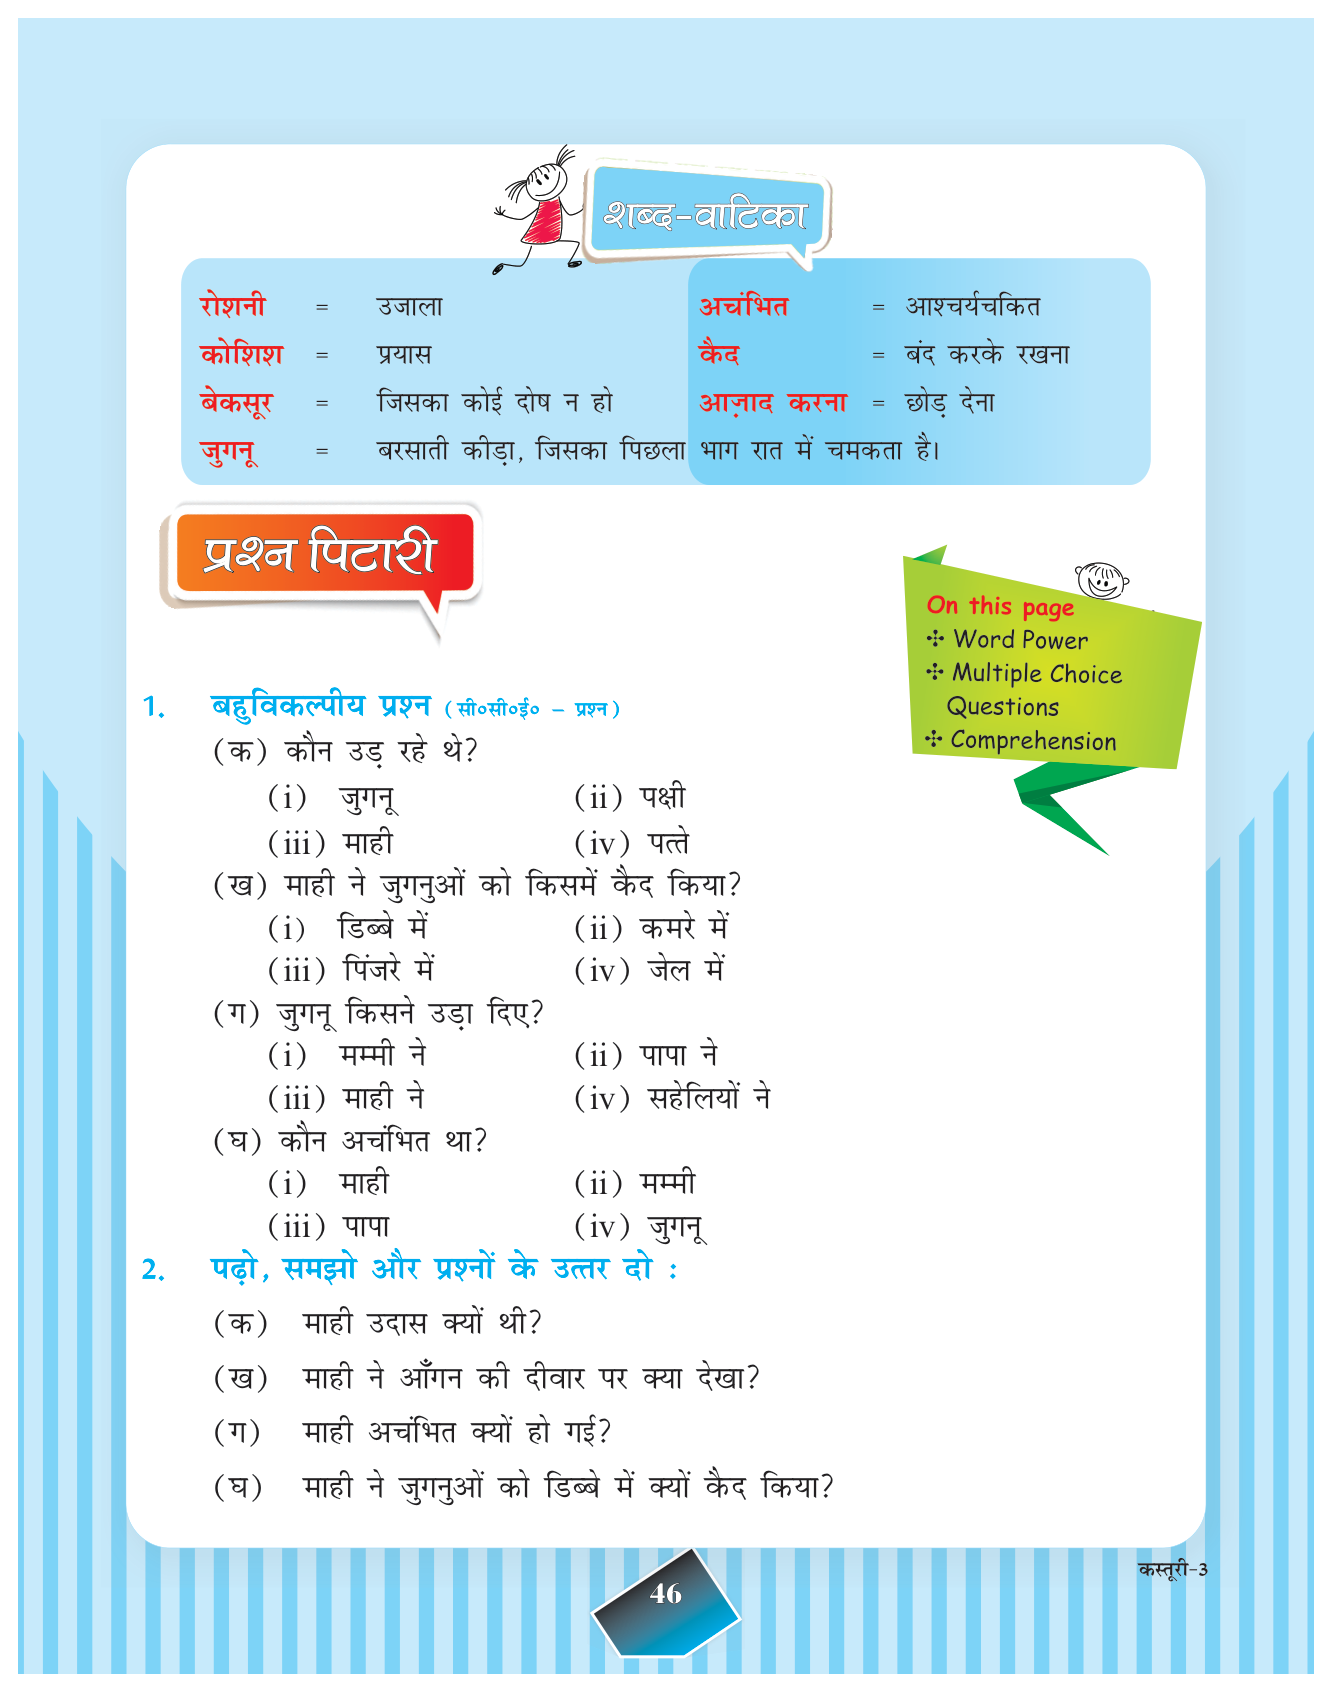 शब्द-वाटिका
रोशनी = उजाला अचंभित = आश्चर्यचकित
कोशिश = प्रयास कैद = बंद करके रखना
बेकसूर = जिसका कोई दोष न हो आज़ाद करना = छोड़ देना
जुगनू = बरसाती कीड़ा, जिसका पिछला भाग रात में चमकता है।
प्रश्न पिटारी
On this page
✣ Word Power
✣ Multiple Choice
Questions
✣ Comprehension
1. बहुविकल्पीय प्रश्न (सी०सी०ई० – प्रश्न)
(क) कौन उड़ रहे थे?
(i) जुगनू (ii) पक्षी
(iii) माही (iv) पत्ते
(ख) माही ने जुगनुओं को किसमें कैद किया?
(i) डिब्बे में (ii) कमरे में
(iii) पिंजरे में (iv) जेल में
(ग) जुगनू किसने उड़ा दिए?
(i) मम्मी ने (ii) पापा ने
(iii) माही ने (iv) सहेलियों ने
(घ) कौन अचंभित था?
(i) माही (ii) मम्मी
(iii) पापा (iv) जुगनू
2. पढ़ो, समझो और प्रश्नों के उत्तर दो :
(क) माही उदास क्यों थी?
(ख) माही ने आँगन की दीवार पर क्या देखा?
(ग) माही अचंभित क्यों हो गई?
(घ) माही ने जुगनुओं को डिब्बे में क्यों कैद किया?
कस्तूरी-3
46